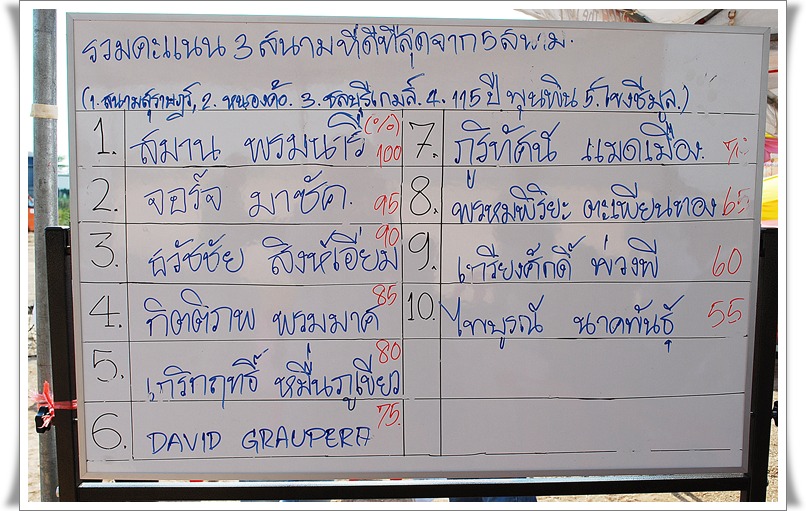 รวมคะแนน 3 สนามที่ดีที่สุดจาก 5 สนาม.
(1. สนามสุราษฎร์, 2. หนองค้อ. 3. ชลบุรีเกมส์. 4. 115 ปี พุนพิน 5. โขงชีมูล.)
1. สมาน พรมนารี (%) 100
2. จอร์จ มาซัค. 95
3. ธวัชชัย สิงห์เอี่ยม 90
4. กิตติภพ พรมมาศ 85
5. เกริกฤทธิ์ หมื่นภูเขียว 80
6. DAVID GRAUPERA 75.
7. ภูริทัศน์ แมดเมือง. 70
8. พรหมพิริยะ ตะเพียนทอง 65
9. เกรียงศักดิ์ พ่วงพี 60
10. ไพบูรณ์ นาคพันธุ์ 55